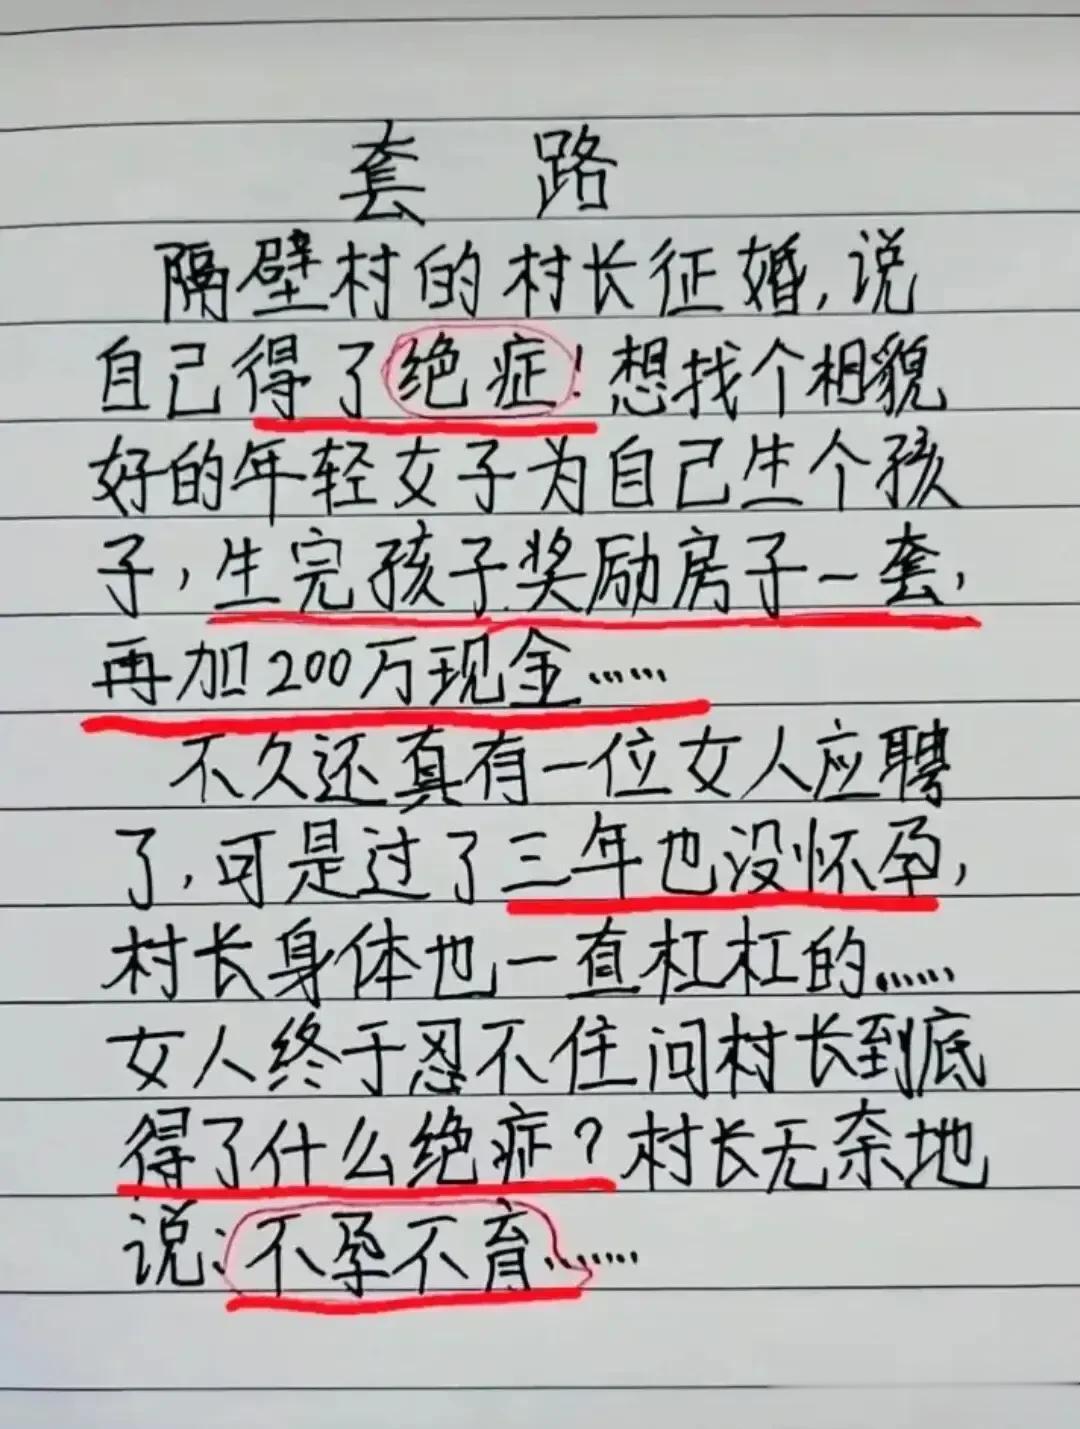 套 路
隔壁村的村长征婚,说
自己得了绝症!想找个相貌
好的年轻女子为自己生个孩
子,生完孩子奖励房子一套,
再加200万现金……
不久还真有一位女人应聘
了,可是过了三年也没怀孕,
村长身体也一直杠杠的……
女人终于忍不住问村长到底
得了什么绝症?村长无奈地
说:不孕不育……